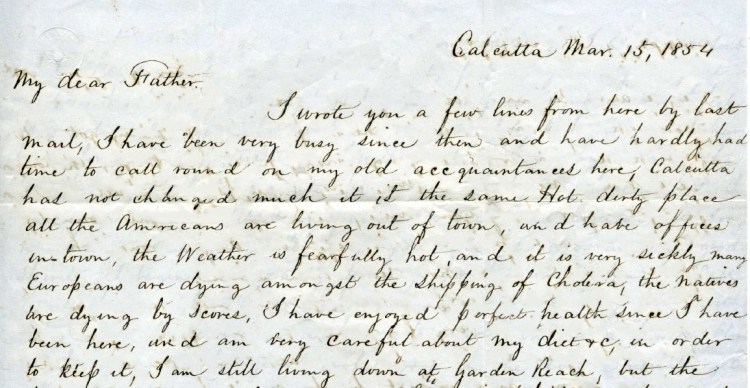 Calcutta Mar. 15, 1854
My dear Father.
I wrote you a few lines from here by last
mail, I have been very busy since then and have hardly had
time to call round on my old accquaintances here, Calcutta
has not changed much it is the same Hot dirty place
all the Americans are living out of town, and have offices
in town, the Weather is fearfully hot, and it is very sickly many
Europeans are dying amongst the shipping of Cholera, the natives
are dying by scores, I have enjoyed perfect health since I have
been here, and am very careful about my diet &c, in order
to keep it, I am still living down at Garden Reach, but the